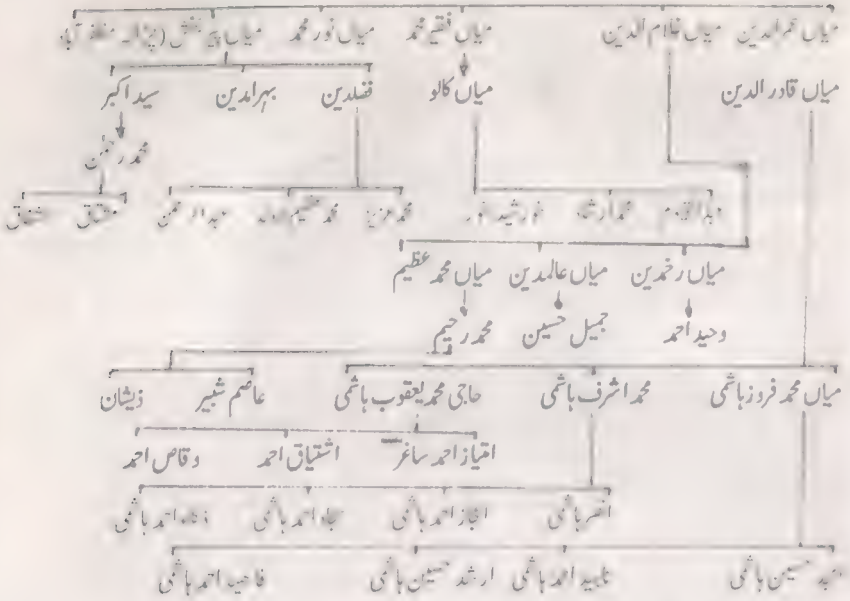 میاں عمرالدین میاں غلام الدین میاں فقیر محمد میاں نور محمد میاں پیر بخش
میاں قادر الدین میاں کالو فضلدین بہرامدین سید اکبر
محمد رحمٰن
محمد ارشد خورشید نور محمد عزیز محمد عظیم عبدالرحمن مشتاق اشفاق
میاں رخمدین میاں عالمدین میاں محمد عظیم
وحید احمد جمیل حسین محمد رحیم
میاں محمد فروز ہاشمی محمد اشرف ہاشمی حاجی محمد یعقوب ہاشمی عاصم شبیر ذیشان
امتیاز احمد ساغر اشتیاق احمد وقاص احمد
انصر ہاشمی اعجاز احمد ہاشمی سجاد احمد ہاشمی احمد ہاشمی
حسین ہاشمی احمد ہاشمی ارشد حسین ہاشمی احمد ہاشمی